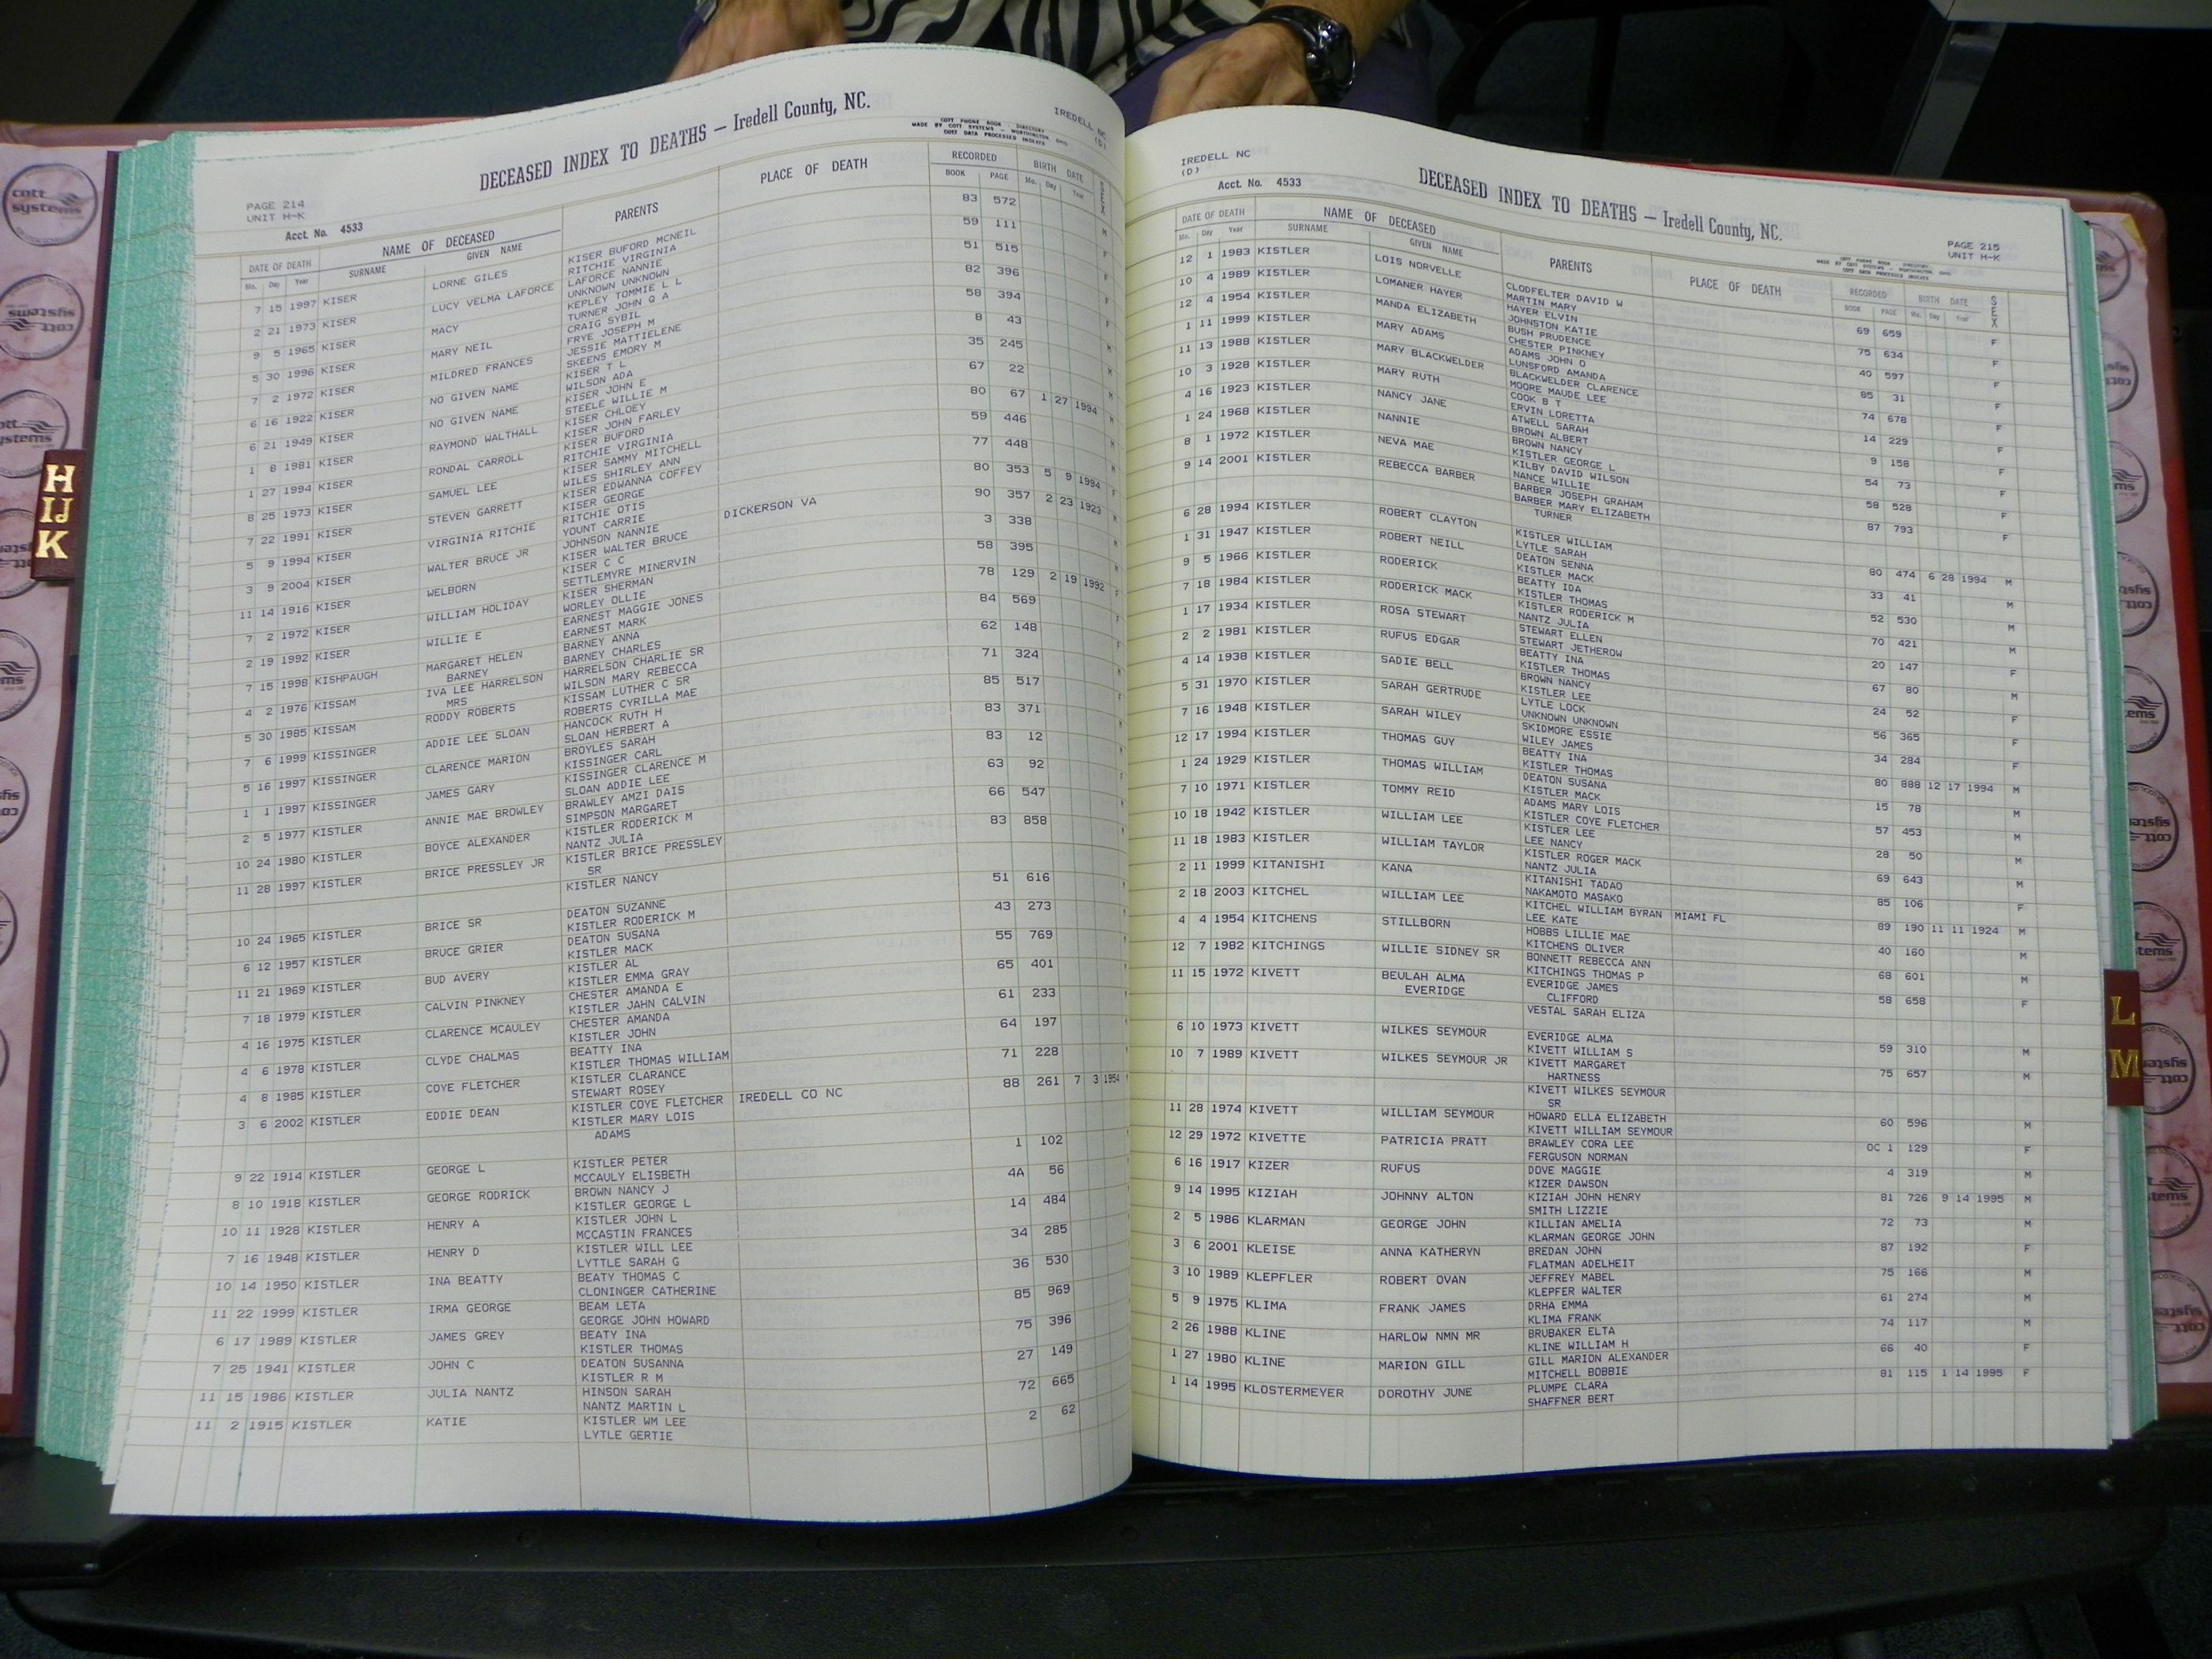 IREDELL NC
(D)
DECEASED INDEX TO DEATHS — Iredell County, NC.
COTT PHONE BOOK - DIRECTORY
MADE BY COTT SYSTEMS - WORTHINGTON, OHIO
COTT DATA PROCESSED INDEXES
PAGE 214
UNIT H-K
Acct. No. 4533
DATE OF DEATH NAME OF DECEASED PARENTS PLACE OF DEATH RECORDED BIRTH DATE SEX
Mo. Day Year SURNAME GIVEN NAME BOOK PAGE Mo. Day Year
7 15 1997 KISER LORNE GILES KISER BUFORD MCNEIL 83 572 M
RITCHIE VIRGINIA
2 21 1973 KISER LUCY VELMA LAFORCE LAFORCE NANNIE 59 111 F
UNKNOWN UNKNOWN
9 5 1965 KISER MACY KEPLEY TOMMIE L L 51 515 F
TURNER JOHN Q A
5 30 1996 KISER MARY NEIL CRAIG SYBIL 82 396 F
FRYE JOSEPH M
7 2 1972 KISER MILDRED FRANCES JESSIE MATTIELENE 58 394 F
SKEENS EMORY M
6 16 1922 KISER NO GIVEN NAME KISER T L 8 43 M
WILSON ADA
6 21 1949 KISER NO GIVEN NAME KISER JOHN E 35 245 M
STEELE WILLIE M
1 8 1981 KISER RAYMOND WALTHALL KISER CHLOEY 67 22 M
KISER JOHN FARLEY
1 27 1994 KISER RONDAL CARROLL KISER BUFORD 80 67 1 27 1994 M
RITCHIE VIRGINIA
8 25 1973 KISER SAMUEL LEE KISER SAMMY MITCHELL 59 446 M
WILES SHIRLEY ANN
7 22 1991 KISER STEVEN GARRETT KISER EDWANNA COFFEY 77 448 M
KISER GEORGE
5 9 1994 KISER VIRGINIA RITCHIE RITCHIE OTIS 80 353 5 9 1994 F
YOUNT CARRIE
3 9 2004 KISER WALTER BRUCE JR JOHNSON NANNIE DICKERSON VA 90 357 2 23 1923 M
KISER WALTER BRUCE
11 14 1916 KISER WELBORN KISER C C 3 338 M
SETTLEMYRE MINERVIN
7 2 1972 KISER WILLIAM HOLIDAY KISER SHERMAN 58 395 M
WORLEY OLLIE
2 19 1992 KISER WILLIE E EARNEST MAGGIE JONES 78 129 2 19 1992 F
EARNEST MARK
7 15 1998 KISHPAUGH MARGARET HELEN BARNEY ANNA 84 569 F
BARNEY BARNEY CHARLES
4 2 1976 KISSAM IVA LEE HARRELSON HARRELSON CHARLIE SR 62 148 F
MRS WILSON MARY REBECCA
5 30 1985 KISSAM RODDY ROBERTS KISSAM LUTHER C SR 71 324
ROBERTS CYRILLA MAE
7 6 1999 KISSINGER ADDIE LEE SLOAN HANCOCK RUTH H 85 517 F
SLOAN HERBERT A
5 16 1997 KISSINGER CLARENCE MARION BROYLES SARAH 83 371 M
KISSINGER CARL
1 1 1997 KISSINGER JAMES GARY KISSINGER CLARENCE M 83 12
SLOAN ADDIE LEE
2 5 1977 KISTLER ANNIE MAE BROWLEY BRAWLEY AMZI DAIS 63 92
SIMPSON MARGARET
10 24 1980 KISTLER BOYCE ALEXANDER KISTLER RODERICK M 66 547
NANTZ JULIA
11 28 1997 KISTLER BRICE PRESSLEY JR KISTLER BRICE PRESSLEY 83 858
SR
KISTLER NANCY
10 24 1965 KISTLER BRICE SR DEATON SUZANNE 51 616
KISTLER RODERICK M
6 12 1957 KISTLER BRUCE GRIER DEATON SUSANA 43 273
KISTLER MACK
11 21 1969 KISTLER BUD AVERY KISTLER AL 55 769
KISTLER EMMA GRAY
7 18 1979 KISTLER CALVIN PINKNEY CHESTER AMANDA E 65 401
KISTLER JAHN CALVIN
4 16 1975 KISTLER CLARENCE MCAULEY CHESTER AMANDA 61 233
KISTLER JOHN
4 6 1978 KISTLER CLYDE CHALMAS BEATTY INA 64 197
KISTLER THOMAS WILLIAM
4 8 1985 KISTLER COYE FLETCHER KISTLER CLARANCE 71 228
STEWART ROSEY
3 6 2002 KISTLER EDDIE DEAN KISTLER COYE FLETCHER IREDELL CO NC 88 261 7 3 1954
KISTLER MARY LOIS
ADAMS
9 22 1914 KISTLER GEORGE L KISTLER PETER 1 102
MCCAULY ELISBETH
8 10 1918 KISTLER GEORGE RODRICK BROWN NANCY J 4A 56
KISTLER GEORGE L
10 11 1928 KISTLER HENRY A KISTLER JOHN L 14 484
MCCASTIN FRANCES
7 16 1948 KISTLER HENRY D KISTLER WILL LEE 34 285
LYTTLE SARAH G
10 14 1950 KISTLER INA BEATTY BEATY THOMAS C 36 530
CLONINGER CATHERINE
11 22 1999 KISTLER IRMA GEORGE BEAM LETA 85 969
GEORGE JOHN HOWARD
6 17 1989 KISTLER JAMES GREY BEATY INA 75 396
KISTLER THOMAS
7 25 1941 KISTLER JOHN C DEATON SUSANNA 27 149
KISTLER R M
11 15 1986 KISTLER JULIA NANTZ HINSON SARAH 72 665
NANTZ MARTIN L
11 2 1915 KISTLER KATIE KISTLER WM LEE 2 62
LYTLE GERTIE
IREDELL NC
(D)
Acct. No. 4533
DECEASED INDEX TO DEATHS — Iredell County, NC.
PAGE 215
UNIT H-K
COTT PHONE BOOK - DIRECTORY
MADE BY COTT SYSTEMS - WORTHINGTON, OHIO
COTT DATA PROCESSED INDEXES
DATE OF DEATH NAME OF DECEASED PARENTS PLACE OF DEATH RECORDED BIRTH DATE SEX
Mo. Day Year SURNAME GIVEN NAME BOOK PAGE Mo. Day Year
12 1 1983 KISTLER LOIS NORVELLE CLODFELTER DAVID W 69 659 F
MARTIN MARY
10 4 1989 KISTLER LOMANER HAYER HAYER ELVIN 75 634 F
JOHNSTON KATIE
12 4 1954 KISTLER MANDA ELIZABETH BUSH PRUDENCE 40 597 F
CHESTER PINKNEY
1 11 1999 KISTLER MARY ADAMS ADAMS JOHN O 85 31 F
LUNSFORD AMANDA
11 13 1988 KISTLER MARY BLACKWELDER BLACKWELDER CLARENCE 74 678 F
MOORE MAUDE LEE
10 3 1928 KISTLER MARY RUTH COOK B T 14 229
ERVIN LORETTA
4 16 1923 KISTLER NANCY JANE ATWELL SARAH 9 158 F
BROWN ALBERT
1 24 1968 KISTLER NANNIE BROWN NANCY 54 73 F
KISTLER GEORGE L
8 1 1972 KISTLER NEVA MAE KILBY DAVID WILSON 58 528 F
NANCE WILLIE
9 14 2001 KISTLER REBECCA BARBER BARBER JOSEPH GRAHAM 87 793 F
BARBER MARY ELIZABETH
TURNER
6 28 1994 KISTLER ROBERT CLAYTON KISTLER WILLIAM 80 474 6 28 1994 M
LYTLE SARAH
1 31 1947 KISTLER ROBERT NEILL DEATON SENNA 33 41 M
KISTLER MACK
9 5 1966 KISTLER RODERICK BEATTY IDA 52 530 M
KISTLER THOMAS
7 18 1984 KISTLER RODERICK MACK KISTLER RODERICK M 70 421 M
NANTZ JULIA
1 17 1934 KISTLER ROSA STEWART STEWART ELLEN 20 147 F
STEWART JETHEROW
2 2 1981 KISTLER RUFUS EDGAR BEATTY INA 67 80 M
KISTLER THOMAS
4 14 1938 KISTLER SADIE BELL BROWN NANCY 24 52 F
KISTLER LEE
5 31 1970 KISTLER SARAH GERTRUDE LYTLE LOCK 56 365 F
UNKNOWN UNKNOWN
7 16 1948 KISTLER SARAH WILEY SKIDMORE ESSIE 34 284 F
WILEY JAMES
12 17 1994 KISTLER THOMAS GUY BEATTY INA 80 888 12 17 1994 M
KISTLER THOMAS
1 24 1929 KISTLER THOMAS WILLIAM DEATON SUSANA 15 78 M
KISTLER MACK
7 10 1971 KISTLER TOMMY REID ADAMS MARY LOIS 57 453 M
KISTLER COYE FLETCHER
10 18 1942 KISTLER WILLIAM LEE KISTLER LEE 28 50 M
LEE NANCY
11 18 1983 KISTLER WILLIAM TAYLOR KISTLER ROGER MACK 69 643 M
NANTZ JULIA
2 11 1999 KITANISHI KANA KITANISHI TADAO 85 106 F
NAKAMOTO MASAKO
2 18 2003 KITCHEL WILLIAM LEE KITCHEL WILLIAM BYRAN MIAMI FL 89 190 11 11 1924 M
LEE KATE
4 4 1954 KITCHENS STILLBORN HOBBS LILLIE MAE 40 160 M
KITCHENS OLIVER
12 7 1982 KITCHINGS WILLIE SIDNEY SR BONNETT REBECCA ANN 68 601 M
KITCHINGS THOMAS P
11 15 1972 KIVETT BEULAH ALMA EVERIDGE JAMES 58 658 F
EVERIDGE CLIFFORD
VESTAL SARAH ELIZA
6 10 1973 KIVETT WILKES SEYMOUR EVERIDGE ALMA 59 310 M
KIVETT WILLIAM S
10 7 1989 KIVETT WILKES SEYMOUR JR KIVETT MARGARET 75 657 M
HARTNESS
KIVETT WILKES SEYMOUR
SR
11 28 1974 KIVETT WILLIAM SEYMOUR HOWARD ELLA ELIZABETH 60 596 M
KIVETT WILLIAM SEYMOUR
12 29 1972 KIVETTE PATRICIA PRATT BRAWLEY CORA LEE OC 1 129 F
FERGUSON NORMAN
6 16 1917 KIZER RUFUS DOVE MAGGIE 4 319 M
KIZER DAWSON
9 14 1995 KIZIAH JOHNNY ALTON KIZIAH JOHN HENRY 81 726 9 14 1995 M
SMITH LIZZIE
2 5 1986 KLARMAN GEORGE JOHN KILLIAN AMELIA 72 73 M
KLARMAN GEORGE JOHN
3 6 2001 KLEISE ANNA KATHERYN BREDAN JOHN 87 192 F
FLATMAN ADELHEIT
3 10 1989 KLEPFLER ROBERT OVAN JEFFREY MABEL 75 166 M
KLEPFER WALTER
5 9 1975 KLIMA FRANK JAMES DRHA EMMA 61 274 M
KLIMA FRANK
2 26 1988 KLINE HARLOW NMN MR BRUBAKER ELTA 74 117 M
KLINE WILLIAM H
1 27 1980 KLINE MARION GILL GILL MARION ALEXANDER 66 40 F
MITCHELL BOBBIE
1 14 1995 KLOSTERMEYER DOROTHY JUNE PLUMPE CLARA 81 115 1 14 1995 F
SHAFFNER BERT
H
IJ
K
L
M
cott
systems